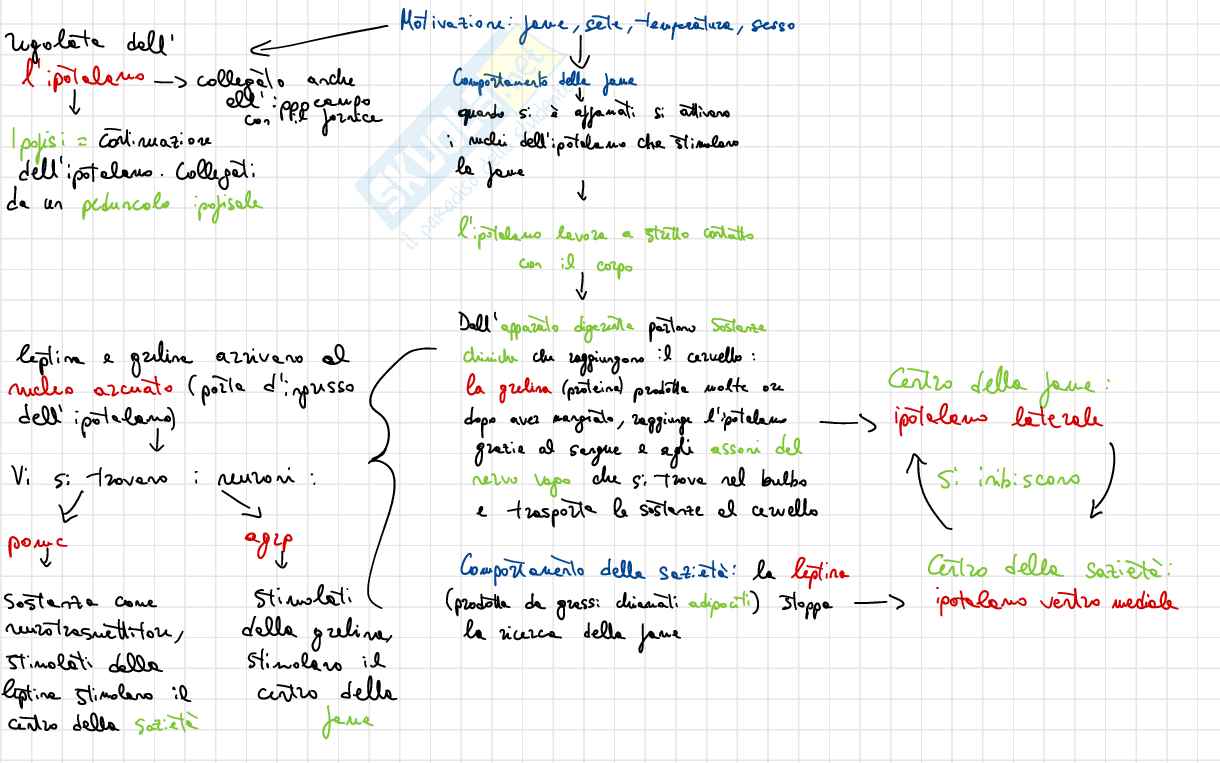 Motivazione: fame, sete, temperatura, sesso
regolata dell'
l'ipotalamo → collegato anche
all'ippocampo
con il fornice
Ipofisi = continuazione
dell'ipotalamo. Collegati
da un peduncolo ipofisale
Comportamento della fame
quando si è affamati si attivano
i nuclei dell'ipotalamo che stimolano
la fame
l'ipotalamo lavora a stretto contatto
con il corpo
Dall'apparato digerente partono sostanze
chimiche che raggiungono il cervello:
la grelina (proteina) prodotta molte ore
dopo aver mangiato, raggiunge l'ipotalamo
grazie al sangue e agli assoni del
nervo vago che si trova nel bulbo
e trasporta le sostanze al cervello
Comportamento della sazietà: la leptina
(prodotta da grassi chiamati adipociti) stoppa
la ricerca della fame
Centro della fame:
ipotalamo laterale
Si inibiscono
Centro della sazietà:
ipotalamo ventro mediale
leptina e grelina arrivano al
nucleo arcuato (porta d'ingresso
dell'ipotalamo)
Vi si trovano i neuroni:
pomc
sostanza come
neurotrasmettitore,
stimolati dalla
leptina stimolano il
centro della sazietà
agrp
stimolati
dalla grelina,
stimolano il
centro della
fame
SKUOLA.net